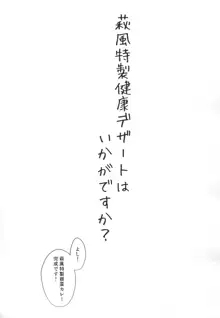 萩風特製健康デザートは
いかがですか？
よしー！
萩風特製健康カレー
完成です！